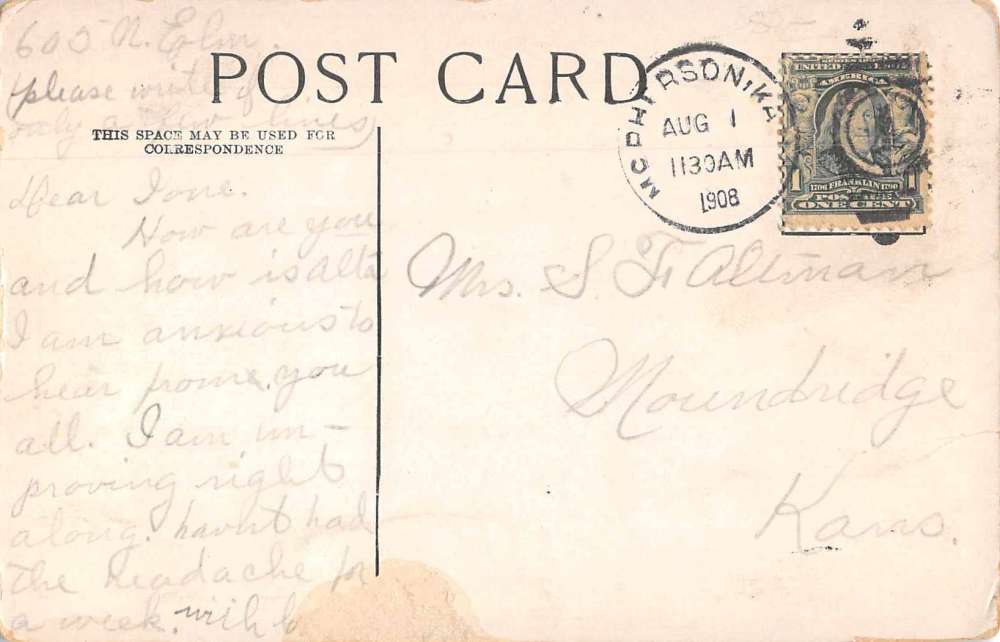 605 N. Elm.
please write if
only a few lines
POST CARD
THIS SPACE MAY BE USED FOR
CORRESPONDENCE
Dear Ione.
How are you
and how is Alta
I am anxious to
hear frome you
all. I am im-
proving right
along. havnt had
the headache for
a week. with
MCPHERSON, KA
AUG 1
1130AM
1908
UNITED
AMERICA
1706 FRANKLIN 1790
POSTAGE
1 ONE CENT 1
Mrs. S. F. Altman
Moundridge
Kans.